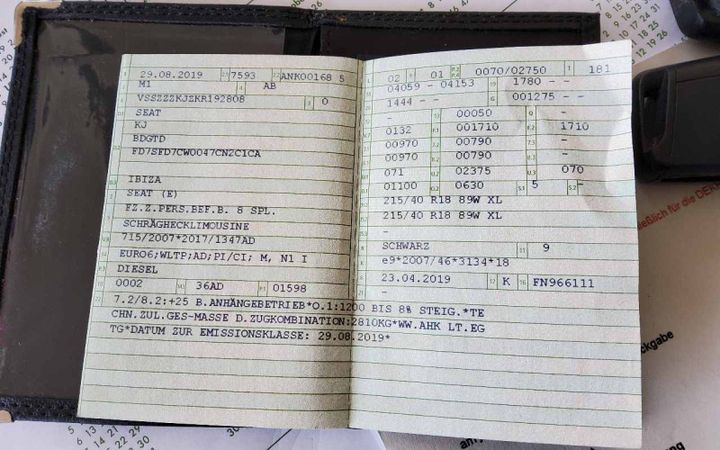 29.08.2019 7593 ANK00168 5
M1 AB
VSSZZZKJZKR192808 0
SEAT
KJ
BDGTD
FD7SFD7CW0047CN2C1CA
IBIZA
SEAT (E)
FZ.Z.PERS.BEF.B. 8 SPL.
SCHRÄGHECKLIMOUSINE
715/2007*2017/1347AD
EURO6;WLTP;AD;PI/CI; M, N1 I
DIESEL
0002 36AD 01598
02 01 0070/02750 181
04059 - 04153 1780 - -
1444 - - 001275 -
- 00050 -
0132 001710 1710
00970 00790 -
00970 00790 -
071 02375 070
01100 0630 5 -
215/40 R18 89W XL
215/40 R18 89W XL
-
SCHWARZ 9
e9*2007/46*3134*18
23.04.2019 K FN966111
7.2/8.2:+25 B.ANHÄNGEBETRIEB*O.1:1200 BIS 8% STEIG.*TE
CHN.ZUL.GES-MASSE D.ZUGKOMBINATION:2810KG*WW.AHK LT.EG
TG*DATUM ZUR EMISSIONSKLASSE: 29.08.2019*
ließlich für die DEK
kgabe